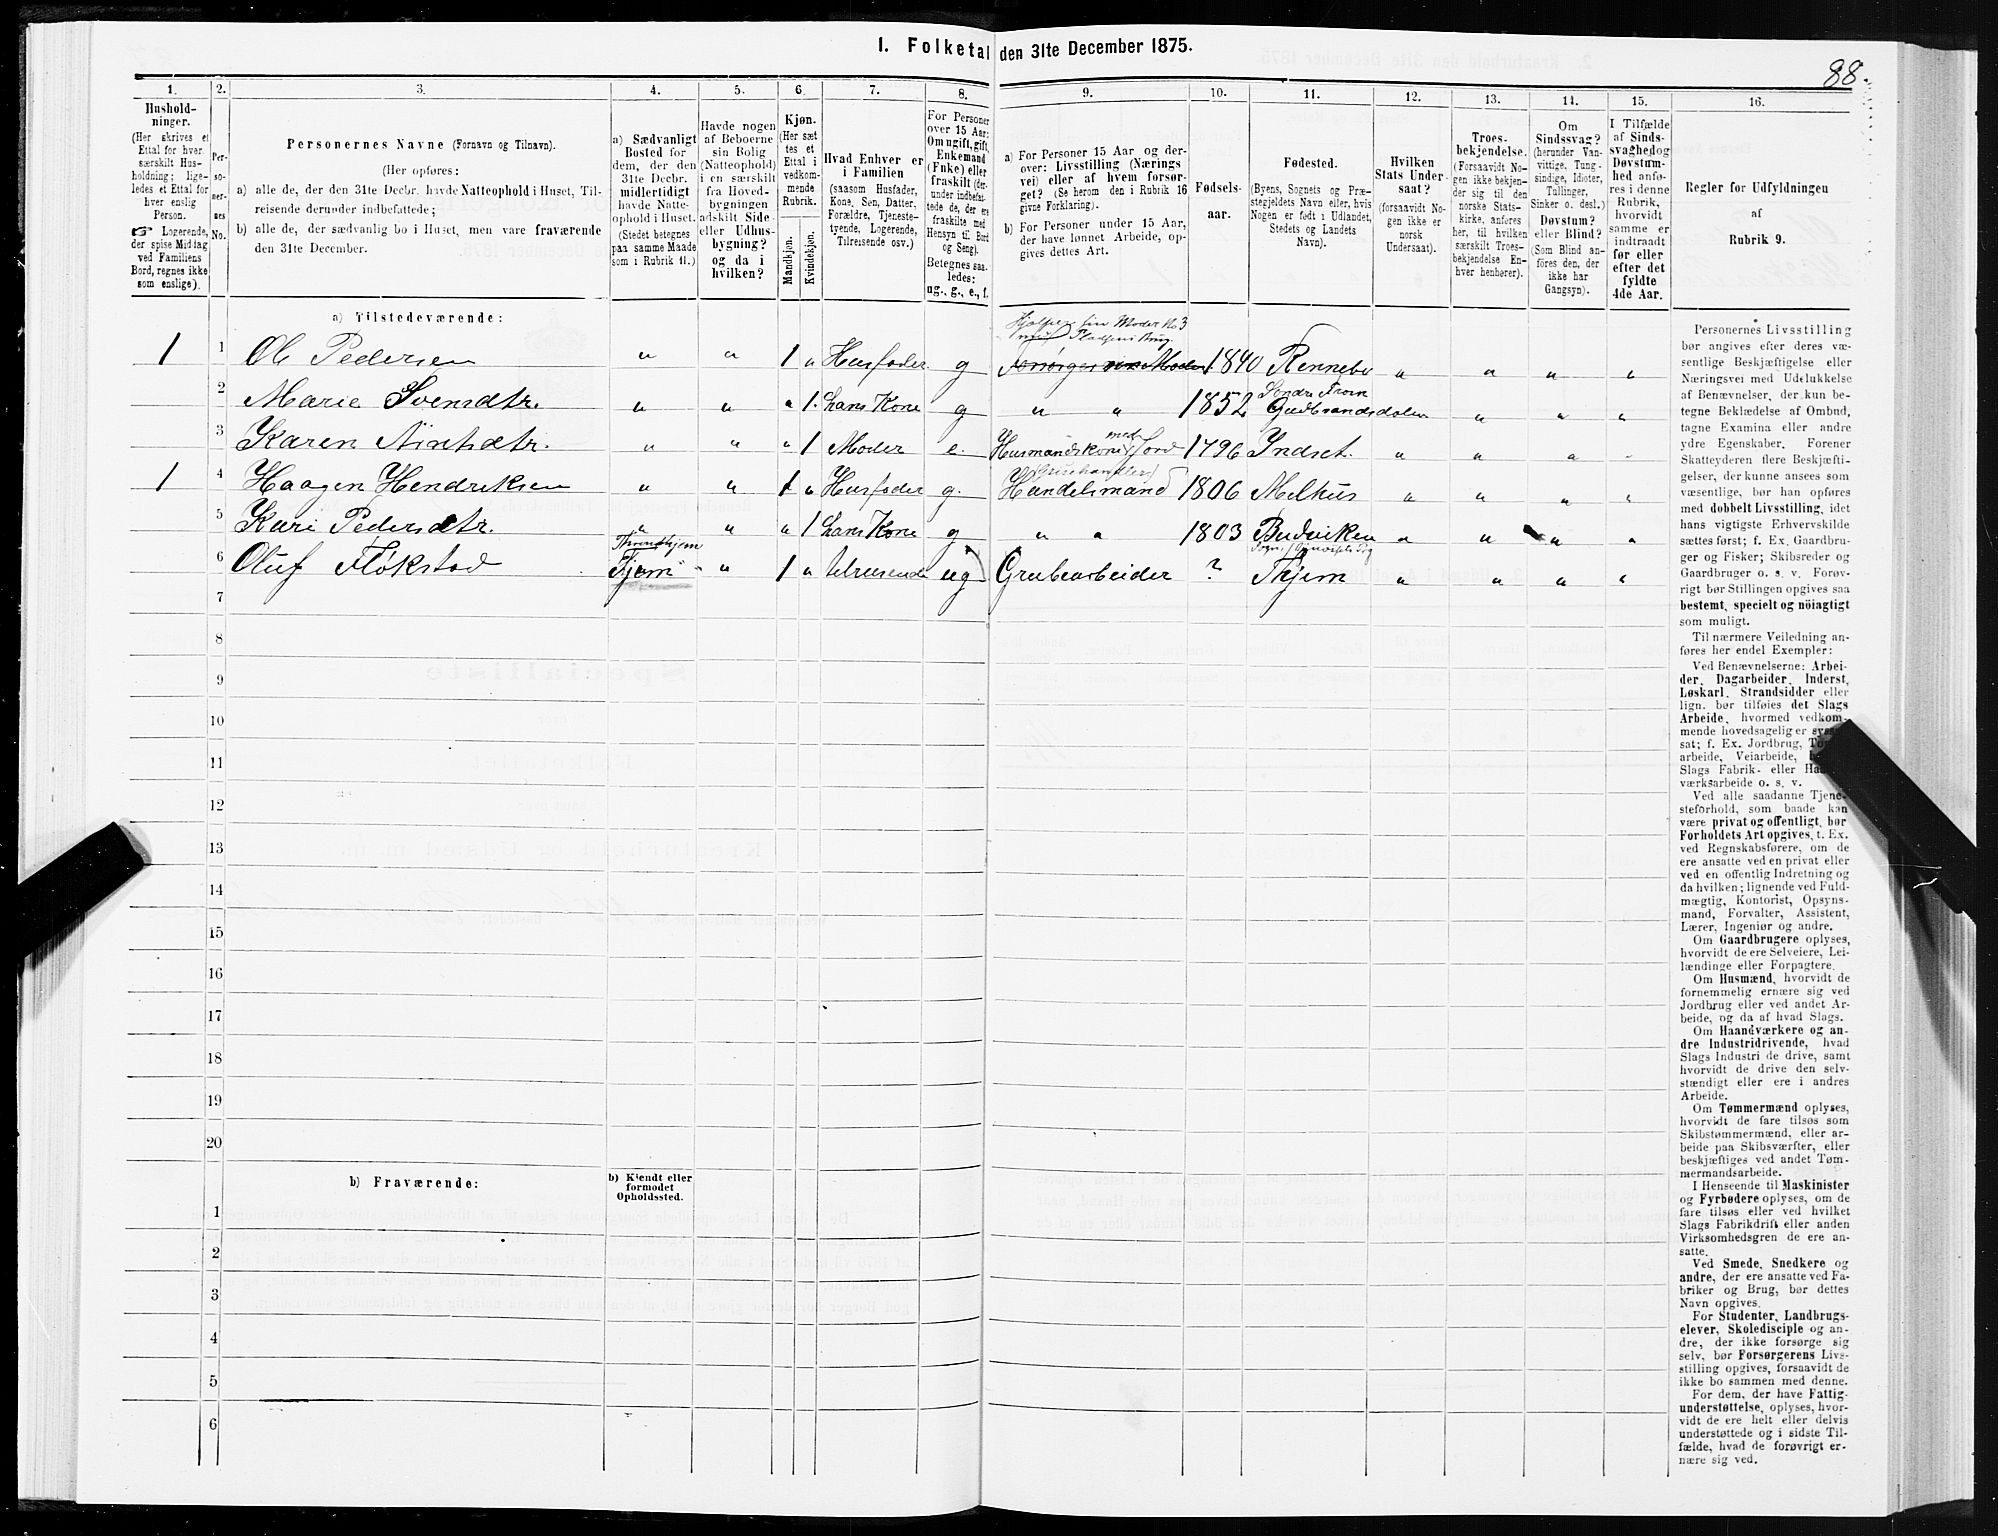 I. Folketal den 31te December 1875.
88.
1. 2. 3. 4. 5. 6. 7. 8. 9. 10. 11. 12. 13. 14. 15. 16.
Hushold-
ninger.
(Her skrives et
Ettal for hver
særskilt Hus-
holdning; lige-
ledes et Ettal for
hver enslig
Person.
☞ Logerende,
der spise Middag
ved Familiens
Bord, regnes ikke
som enslige).
Per-
so-
ner-
nes
No.
Personernes Navne (Fornavn og Tilnavn).
(Her opføres:
a) alle de, der den 31te Decbr. havde Natteophold i Huset, Til-
reisende derunder indbefattede;
b) alle de, der sædvanlig bo i Huset, men vare fraværende
den 31te December.
a) Sædvanligt
Bosted for
dem, der den
31te Decbr.
midlertidigt
havde Natte-
ophold i Huset.
(Stedet betegnes
paa samme Maade
som i Rubrik 11.)
Havde nogen
af Beboerne
sin Bolig
(Natteophold)
i en særskilt
fra Hoved-
bygningen
adskilt Side-
eller Udhus-
bygning?
og da i
hvilken?
Kjøn.
(Her sæt-
tes et
Ettal i
vedkom-
mende
Rubrik.
Mandkjøn.
Kvindekjøn.
Hvad Enhver er
i Familien
(saasom Husfader,
Kone, Søn, Datter,
Forældre, Tjeneste-
tyende, Logerende,
Tilreisende osv.)
For Personer
over 15 Aar:
Om ugift, gift,
Enkemand
(Enke) eller
fraskilt (der-
under indbefat-
tede de, der ere
fraskilte med
Hensyn til Bord
og Seng).
Betegnes saa-
ledes:
ug., g., e., f.
a) For Personer 15 Aar og der-
over: Livsstilling (Nærings-
vei) eller af hvem forsør-
get? (Se herom den i Rubrik 16
givne Forklaring).
b) For Personer under 15 Aar,
der have lønnet Arbeide, op-
gives dettes Art.
Fødsels-
aar.
Fødested.
(Byens, Sognets og Præ-
stegjeldets Navn eller, hvis
Nogen er født i Udlandet,
Stedets og Landets
Navn).
Hvilken
Stats Under-
saat?
(forsaavidt No-
gen ikke er
norsk
Undersaat).
Troes-
bekjendelse.
(Forsaavidt No-
gen ikke bekjen-
der sig til den
norske Stats-
kirke, anføres
her, til hvilken
særskilt Troes-
bekjendelse En-
hver henhører).
Om
Sindssvag?
(herunder Van-
vittige, Tung-
sindige, Idioter,
Tullinger,
Sinker o. desl.)
Døvstum?
eller Blind?
(Som Blind an-
føres den, der
ikke har
Gangsyn).
I Tilfælde
af Sinds-
svaghed og
Døvstum-
hed anfø-
res i denne
Rubrik,
hvorvidt
samme er
indtraadt
før eller
efter det
fyldte
4de Aar.
Regler for Udfyldningen
af
Rubrik 9.
a) Tilstedeværende:
Hjælper sin Moder No 3
med Pladsens Brug.
1 1 Ole Pedersen " " 1 " Husfader g Forsørges Moder 1840 Rennebo " " " "
Søndre Fron
2 Marie Svendsdtr. " " " 1. hans Kone g " " 1852 Gudbrandsdalen " " "
med
3 Karen " " " 1 Moder e. Husmandskone Jord 1796 Indset. " " " "
1 4 Haagen Hendriksen " " 1 " Husfader g. Handelsmand 1806 Melhus " " " "
5 Kari Pedersdtr. " " " 1 hans Kone g " " 1803 Budviken " " " "
Throndhjem
6 Oluf Fløkstad Thjem " 1 " tilreisende ug Grubearbeider ? Thjem " " " "
7
8
9
10
11
12
13
14
15
16
17
18
19
20
b) Fraværende:
b) Kjendt eller
formodet
Opholdssted.
1
2
3
4
5
6
Personernes Livsstilling
bør angives efter deres væ-
sentlige Beskjæftigelse eller
Næringsvei med Udelukkelse
af Benævnelser, der kun be-
tegne Beklædelse af Ombud,
tagne Examina eller andre
ydre Egenskaber. Forener
Skatteyderen flere Beskjæfti-
gelser, der kunne ansees som
væsentlige, bør han opføres
med dobbelt Livsstilling, idet
hans vigtigste Erhvervskilde
sættes først; f. Ex. Gaardbru-
ger og Fisker; Skibsreder og
Gaardbruger o. s. v. Forøv-
rigt bør Stillingen opgives saa
bestemt, specielt og nöiagtigt
som muligt.
Til nærmere Veiledning an-
føres her endel Exempler:
Ved Benævnelserne: Arbei-
der, Dagarbeider, Inderst,
Løskarl, Strandsidder eller
lign. bør tilføies det Slags
Arbeide, hvormed vedkom-
mende hovedsagelig er syssel-
sat; f. Ex. Jordbrug,
arbeide, Veiarbeide,
Slags Fabrik- eller Haand-
værksarbeide o. s. v.
Ved alle saadanne Tjene-
steforhold, som baade kan
være privat og offentligt, bør
Forholdets Art opgives, t. Ex.
ved Regnskabsførere, om de
ere ansatte ved en privat eller
ved en offentlig Indretning og
da hvilken; lignende ved Fuld-
mægtig, Kontorist, Opsyns-
mand, Forvalter, Assistent,
Lærer, Ingeniør og andre.
Om Gaardbrugere oplyses,
hvorvidt de ere Selveiere, Lei-
lændinge eller Forpagtere.
Om Husmænd, hvorvidt de
fornemmelig ernære sig ved
Jordbrug eller ved andet Ar-
beide, og da af hvad Slags.
Om Haandværkere og an-
dre Industridrivende, hvad
Slags Industri de drive, samt
hvorvidt de drive den selv-
stændigt eller ere i andres
Arbeide.
Om Tømmermænd oplyses,
hvorvidt de fare tilsøs som
Skibstømmermænd, eller ar-
beide paa Skibsværfter, eller
beskjæftiges ved andet Tøm-
mermandsarbeide.
I Henseende til Maskinister
og Fyrbødere oplyses, om de
fare tilsøs eller ved hvilket
Slags Fabrikdrift eller anden
Virksomhedsgren de ere an-
satte.
Ved Smede, Snedkere og
andre, der ere ansatte ved Fa-
briker og Brug, bør dettes
Navn opgives.
For Studenter, Landbrugs-
elever, Skoledisciple og an-
dre, der ikke forsørge sig
selv, bør Forsørgerens Livs-
stilling opgives, forsaavidt de
ikke bo sammen med denne.
For dem, der have Fattig-
understøttelse, oplyses, hvor-
vidt de ere helt eller delvis
understøttede og i sidste Til-
fælde, hvad de forøvrigt er-
nære sig ved.